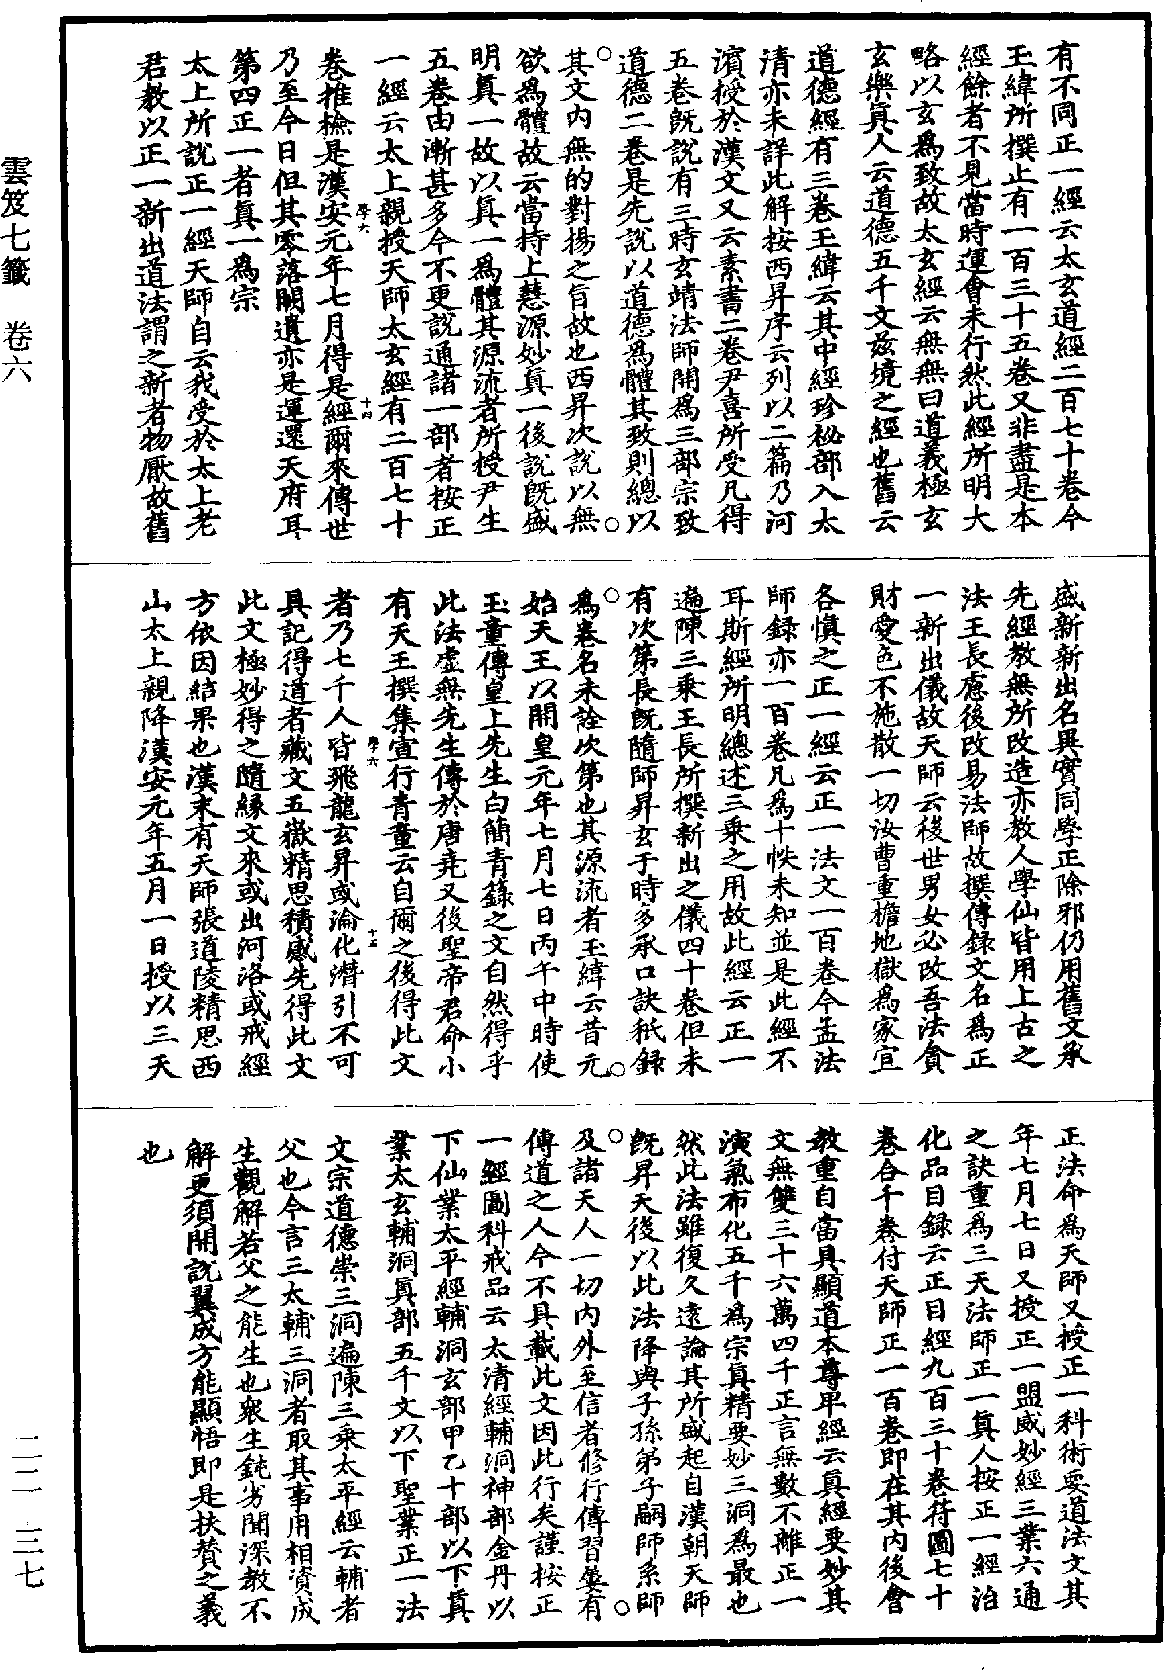 有不同正一經云太玄道經二百七十卷今
王緯所撰止有一百三十五卷又非盡是本
經餘者不見當時運會未行然此經所明大
略以玄爲致故太玄經云無無曰道義極玄
玄樂真人云道德五千文玆境之經也舊云
道德經有三卷王緯云其中經珍祕部入太
清亦未詳此解按西昇序云列以二篇乃河
濱授於漢文又云素書二卷尹喜所受凡得
五卷旣說有三時玄靖法師開爲三部宗致
道德二卷是先說以道德爲體其致則總以
其文內無的對揚之旨故也西昇次說以無
欲爲體故云當持上慧源妙真一後說旣盛
明真一故以真一爲體其源流者所授尹生
五卷由漸甚多今不更說通諸一部者按正
一經云太上親授天師太玄經有二百七十
卷推檢是漢安元年七月得是經爾來傳世
學六 十四
乃至今日但其零落闕遺亦是運還天府耳
第四正一者真一爲宗
太上所說正一經天師自云我受於太上老
君教以正一新出道法謂之新者物厭故舊
盛新新出名異實同學正除邪仍用舊文承
先經教無所改造亦教人學仙皆用上古之
法王長慮後改易法師故撰傳錄文名爲正
一新出儀故天師云後世男女必改吾法貪
財愛色不施散一切汝曹重檐地獄爲家宜
各愼之正一經云正一法文一百卷今孟法
師錄亦一百卷凡爲十帙未知並是此經不
耳斯經所明總述三乘之用故此經云正一
遍陳三乘王長所撰新出之儀四十卷但未
有次第長旣隨師昇玄于時多承口訣秖錄
爲卷名未詮次第也其源流者王緯云昔元
始天王以開皇元年七月七日丙午中時使
玉童傳皇上先生白簡青籙之文自然得乎
此法虛無先生傳於唐堯又後聖帝君命小
有天王撰集宣行青童云自爾之後得此文
學六 十五
者乃七千人皆飛龍玄昇或淪化潛引不可
具記得道者藏文五嶽精思積感先得此文
此文極妙得之隨緣文來或出河洛或戒經
方依因結果也漢末有天師張道陵精思西
山太上親降漢安元年五月一日授以三天
正法命爲天師又授正一科術要道法文其
年七月七日又授正一盟威妙經三業六通
之訣重爲三天法師正一真人按正一經治
化品目錄云正目經九百三十卷符圖七十
卷合千卷付天師正一百卷即在其內後會
教重自當具顯道本尊卑經云真經要妙其
文無雙三十六萬四千正言無數不離正一
演氣布化五千爲宗真精要妙三洞爲最也
然此法雖復久遠論其所盛起自漢朝天師
旣昇天後以此法降與子孫弟子嗣師系師
及諸天人一切內外至信者修行傳習晏有
傳道之人今不具載此文因此行矣謹按正
一經圖科戒品云太清經輔洞神部金丹以
下仙業太平經輔洞玄部甲乙十部以下真
業太玄輔洞真部五千文以下聖業正一法
文宗道德崇三洞遍陳三乘太平經云輔者
父也今言三太輔三洞者取其事用相資成
生觀解若父之能生也衆生鈍劣聞深教不
解更須開說翼成方能顯悟即是扶贊之義
也
雲笈七籤 卷六
二二 三七